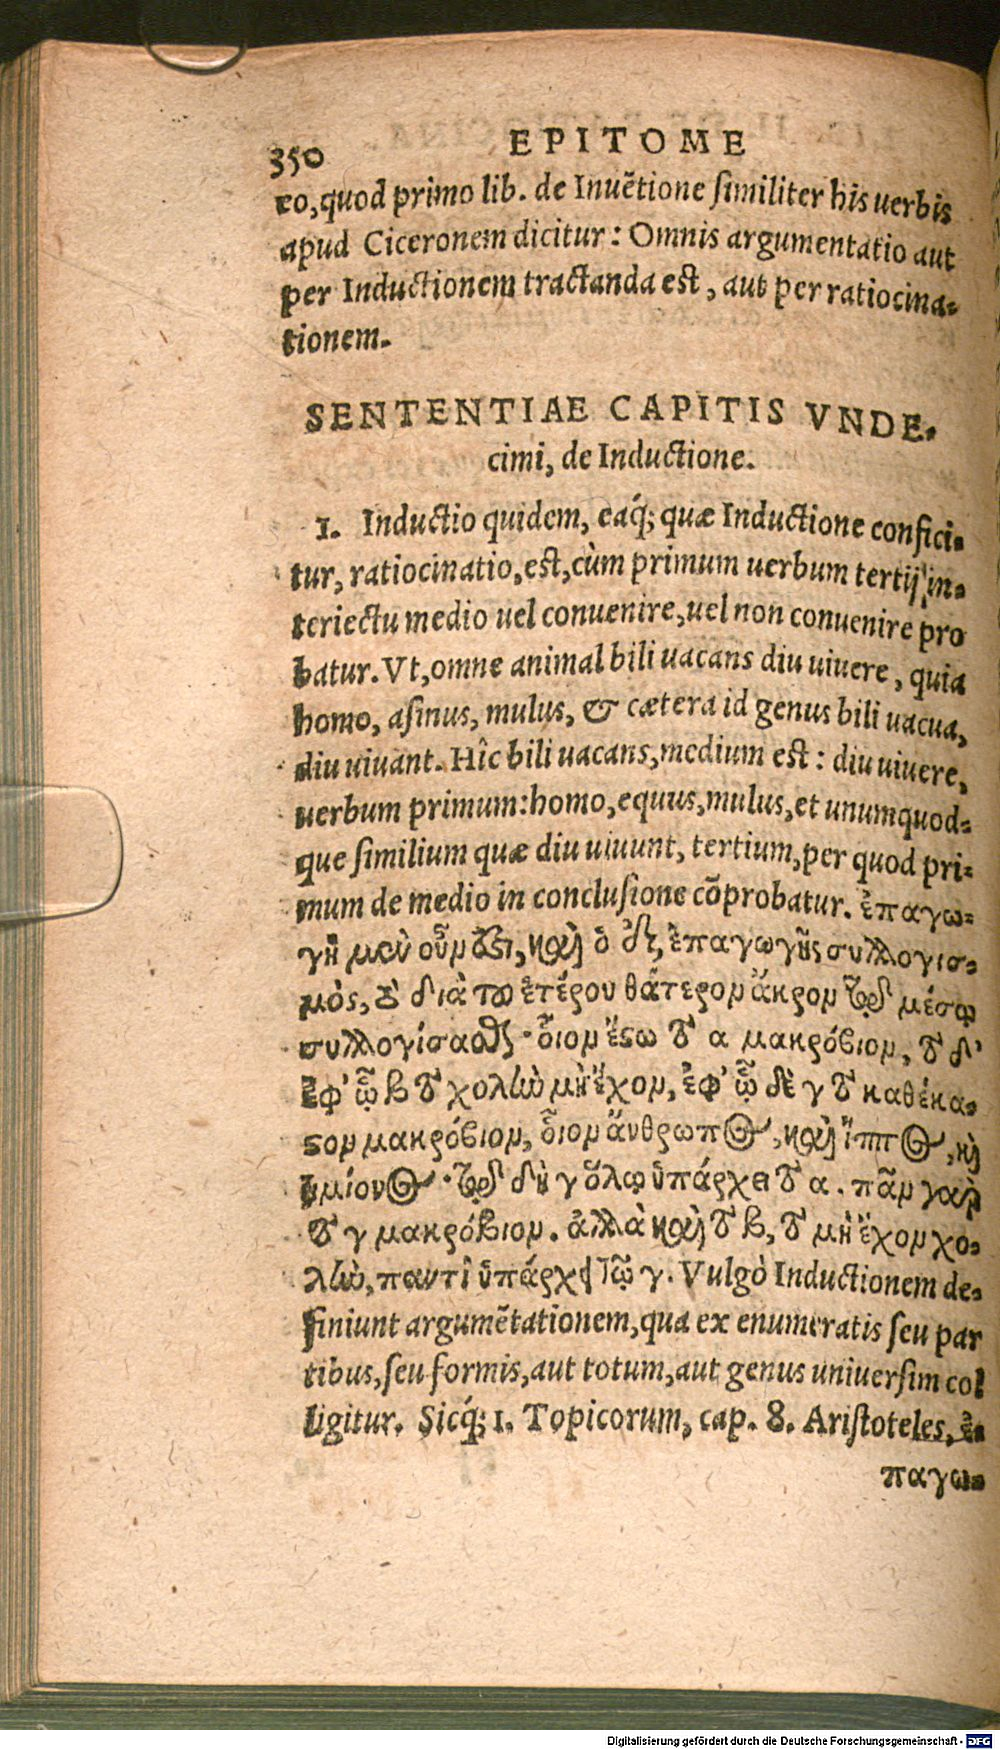 350 EPITOME
eo, quod primo lib. de Inuẽtione similiter his uerbis
apud Ciceronem dicitur: Omnis argumentatio aut
per Inductionem tractanda est, aut per ratiocina-
tionem.
SENTENTIAE CAPITIS VNDE-
cimi, de Inductione.
1. Inductio quidem, eaq́; quæ Inductione confici-
tur, ratiocinatio, est, cùm primum uerbum tertij in-
teriectu medio uel conuenire, uel non conuenire pro
batur. Vt, omne animal bili uacans diu uiuere, quia
homo, asinus, mulus, & cætera id genus bili uacua,
diu uiuant. Hîc bili uacans, medium est: diu uiuere,
uerbum primum: homo, equus, mulus, et unumquod-
que similium quæ diu uiuunt, tertium, per quod pri-
mum de medio in conclusione cõprobatur. ἐπαγω-
γὴ μὲν οὖν ἐστι, καὶ ὁ ἐξ ἐπαγωγῆς συλλογισ-
μὸς, τὸ διὰ τοῦ ἑτέρου θάτερον ἄκρον τῷ μέσῳ
συλλογίσασθαι. οἷον ἔστω τὸ α μακρόβιον, τὸ δ'
ἐφ' ᾧ β τὸ χολὴν μὴ ἔχον, ἐφ' ᾧ δὲ γ τὸ καθέκα-
στον μακρόβιον, οἷον ἄνθρωπος, καὶ ἵππος, καὶ
ἡμίονος. τῷ δὴ γ ὅλῳ ὑπάρχει τὸ α. πᾶν γὰρ
τὸ γ μακρόβιον. ἀλλὰ καὶ τὸ β, τὸ μὴ ἔχον χο-
λὴν, παντὶ ὑπάρχει τῷ γ. Vulgò Inductionem de-
finiunt argumẽtationem, qua ex enumeratis seu par
tibus, seu formis, aut totum, aut genus uniuersim col
ligitur. Sicq́; 1. Topicorum, cap. 8. Aristoteles, ἐ-
παγω-
Digitalisierung gefördert durch die Deutsche Forschungsgemeinschaft - DFG